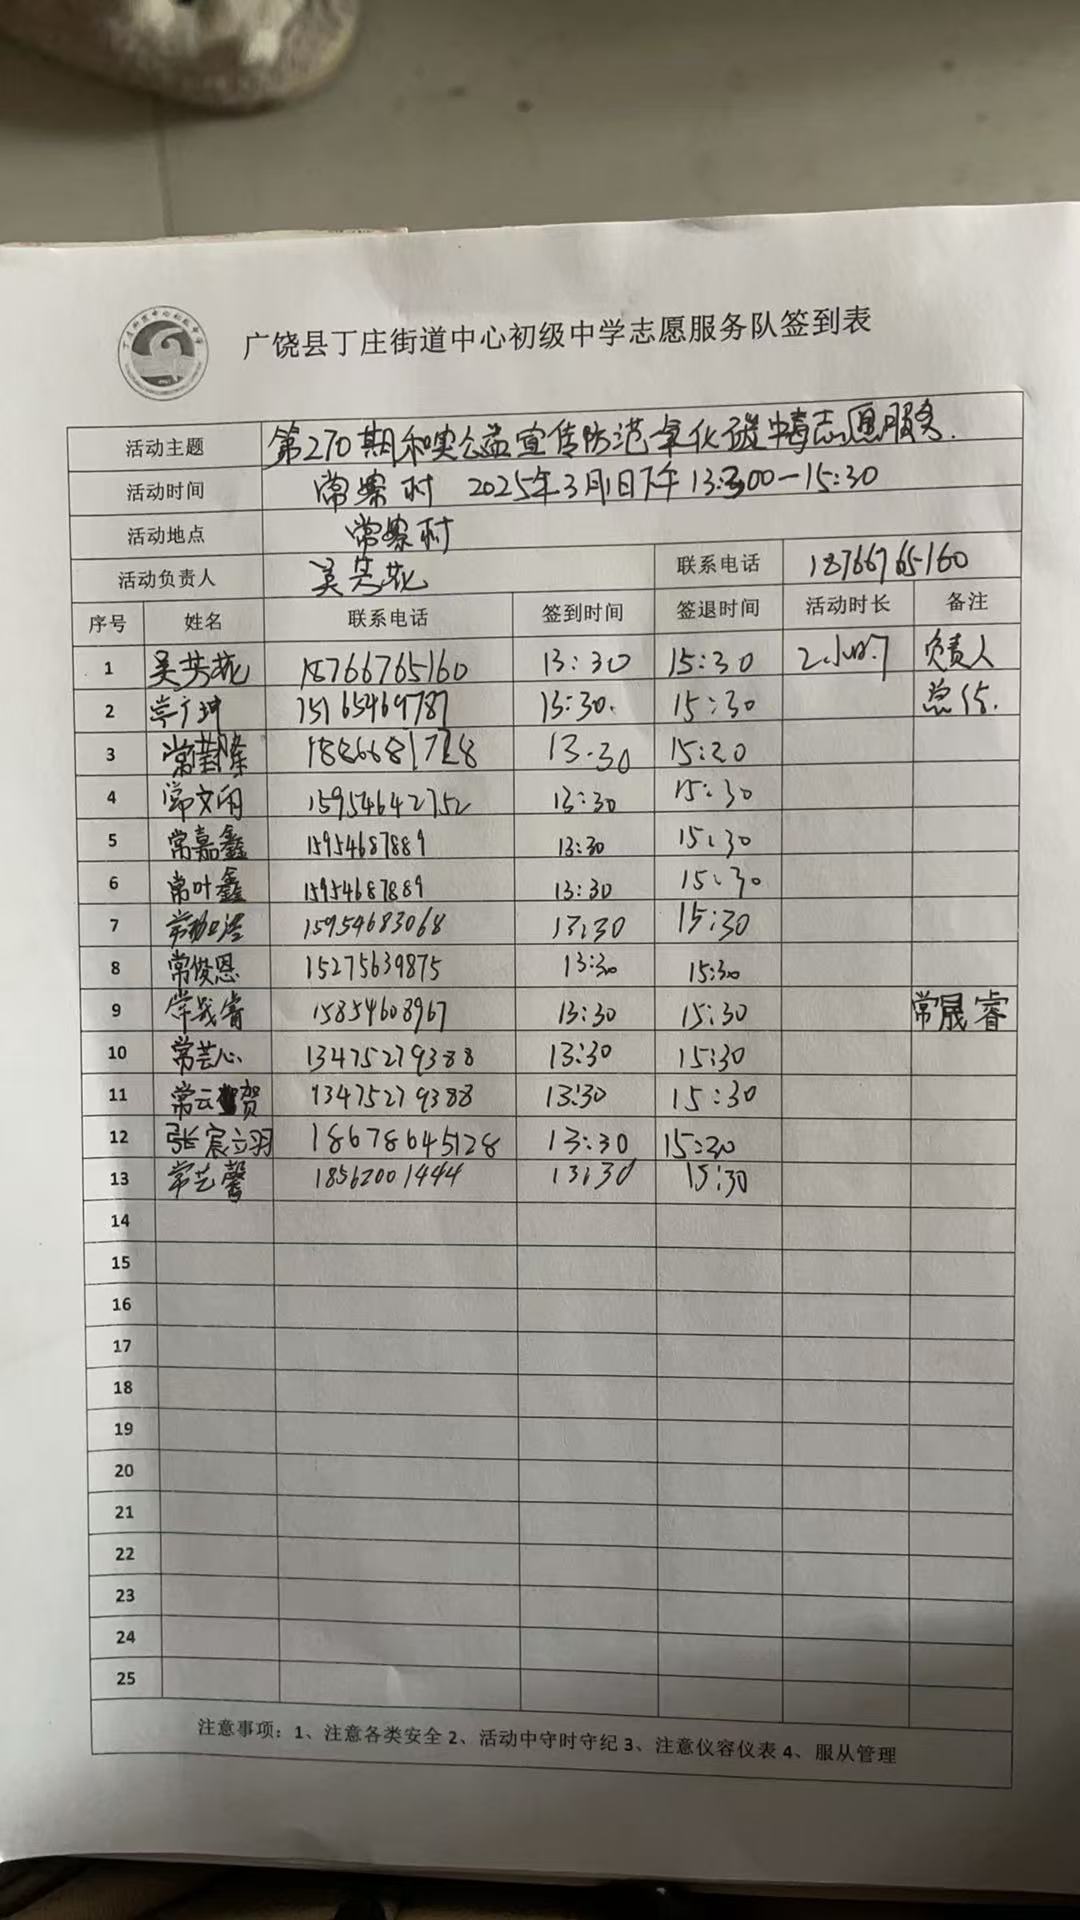 广饶县丁庄街道中心初级中学志愿服务队签到表
活动主题 第270期和奥公益宣传防范一氧化碳中毒志愿服务.
活动时间 常寨村 2025年3月1日下午13:00-15:30
活动地点 常寨村
活动负责人 吴芳花 联系电话 18766765160
序号 姓名 联系电话 签到时间 签退时间 活动时长 备注
1 吴芳花 18766765160 13:30 15:30 2小时 负责人
2 常广坤 15165469787 13:30. 15:30 总结.
3 18866681728 13.30 15:30
4 常文雨 15954642752 13:30 15:30
5 常嘉鑫 15954687889 13:30 15:30
6 常叶鑫 15954687889 13:30 15:30
7 15954683068 13:30 15:30
8 常俊恩 15275639875 13:30 15:30
9 常晟睿 15854608967 13:30 15:30 常晟睿
10 常芸心 13475279388 13:30 15:30
11 常云贺 13475279388 13:30 15:30
12 张宸立羽 18678645128 13:30 15:30
13 常艺馨 18562001444 13:30 15:30
14
15
16
17
18
19
20
21
22
23
24
25
注意事项：1、注意各类安全 2、活动中守时守纪 3、注意仪容仪表 4、服从管理